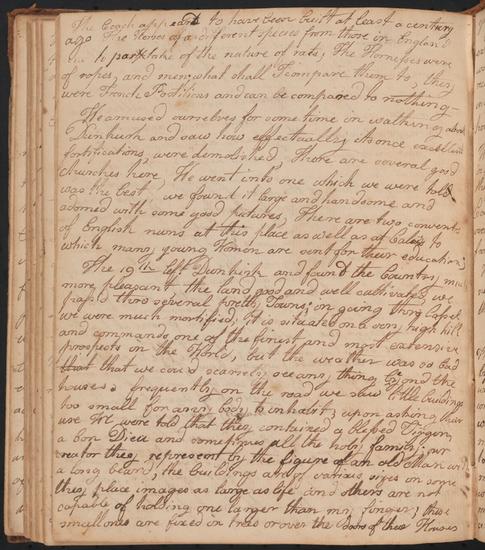 The Coach appeard to have been built at least a century
ago The Horses of a different species from those in England
and to partake of the nature of rats, The Harnesses were
of ropes, and men, what shall I compare them to, they
were French Postilions and can be compared to nothing –
We amused ourselves for some time on walking about
Dunkirk and saw how effectually its once excellent
fortifications were demolished, There are several good
churches here, We went into one which we were told
was the best, we found it large and handsome and
adorned with some good pictures, There are two convents
of English nuns at this place as well as at Calais to
which many young Women are sent for their education;
The 19th left Dunkirk and found the Country much
more pleasant the land good and well cultivated, we
pass'd thro several pretty Towns; in going thro Cassel
we were much mortified, it is situated on a very high hill
and commands one of the finest and most extensive
prospects in the World, but the weather was so bad
that that we could scarcely see any thing beyond the
houses; frequently on the road we saw little buildings
too small for any body to inhabit; upon asking their
use We were told that they contained a blessed Virgin
a bon Dieu and sometimes all the holy family, our
creator they represent by the figure of an old Man with
a long beard, the buildings are of various sizes in some
they place images as large as life and others are not
capable of holding one larger than my finger; these
small ones are fixed in trees or over the doors of their Houses